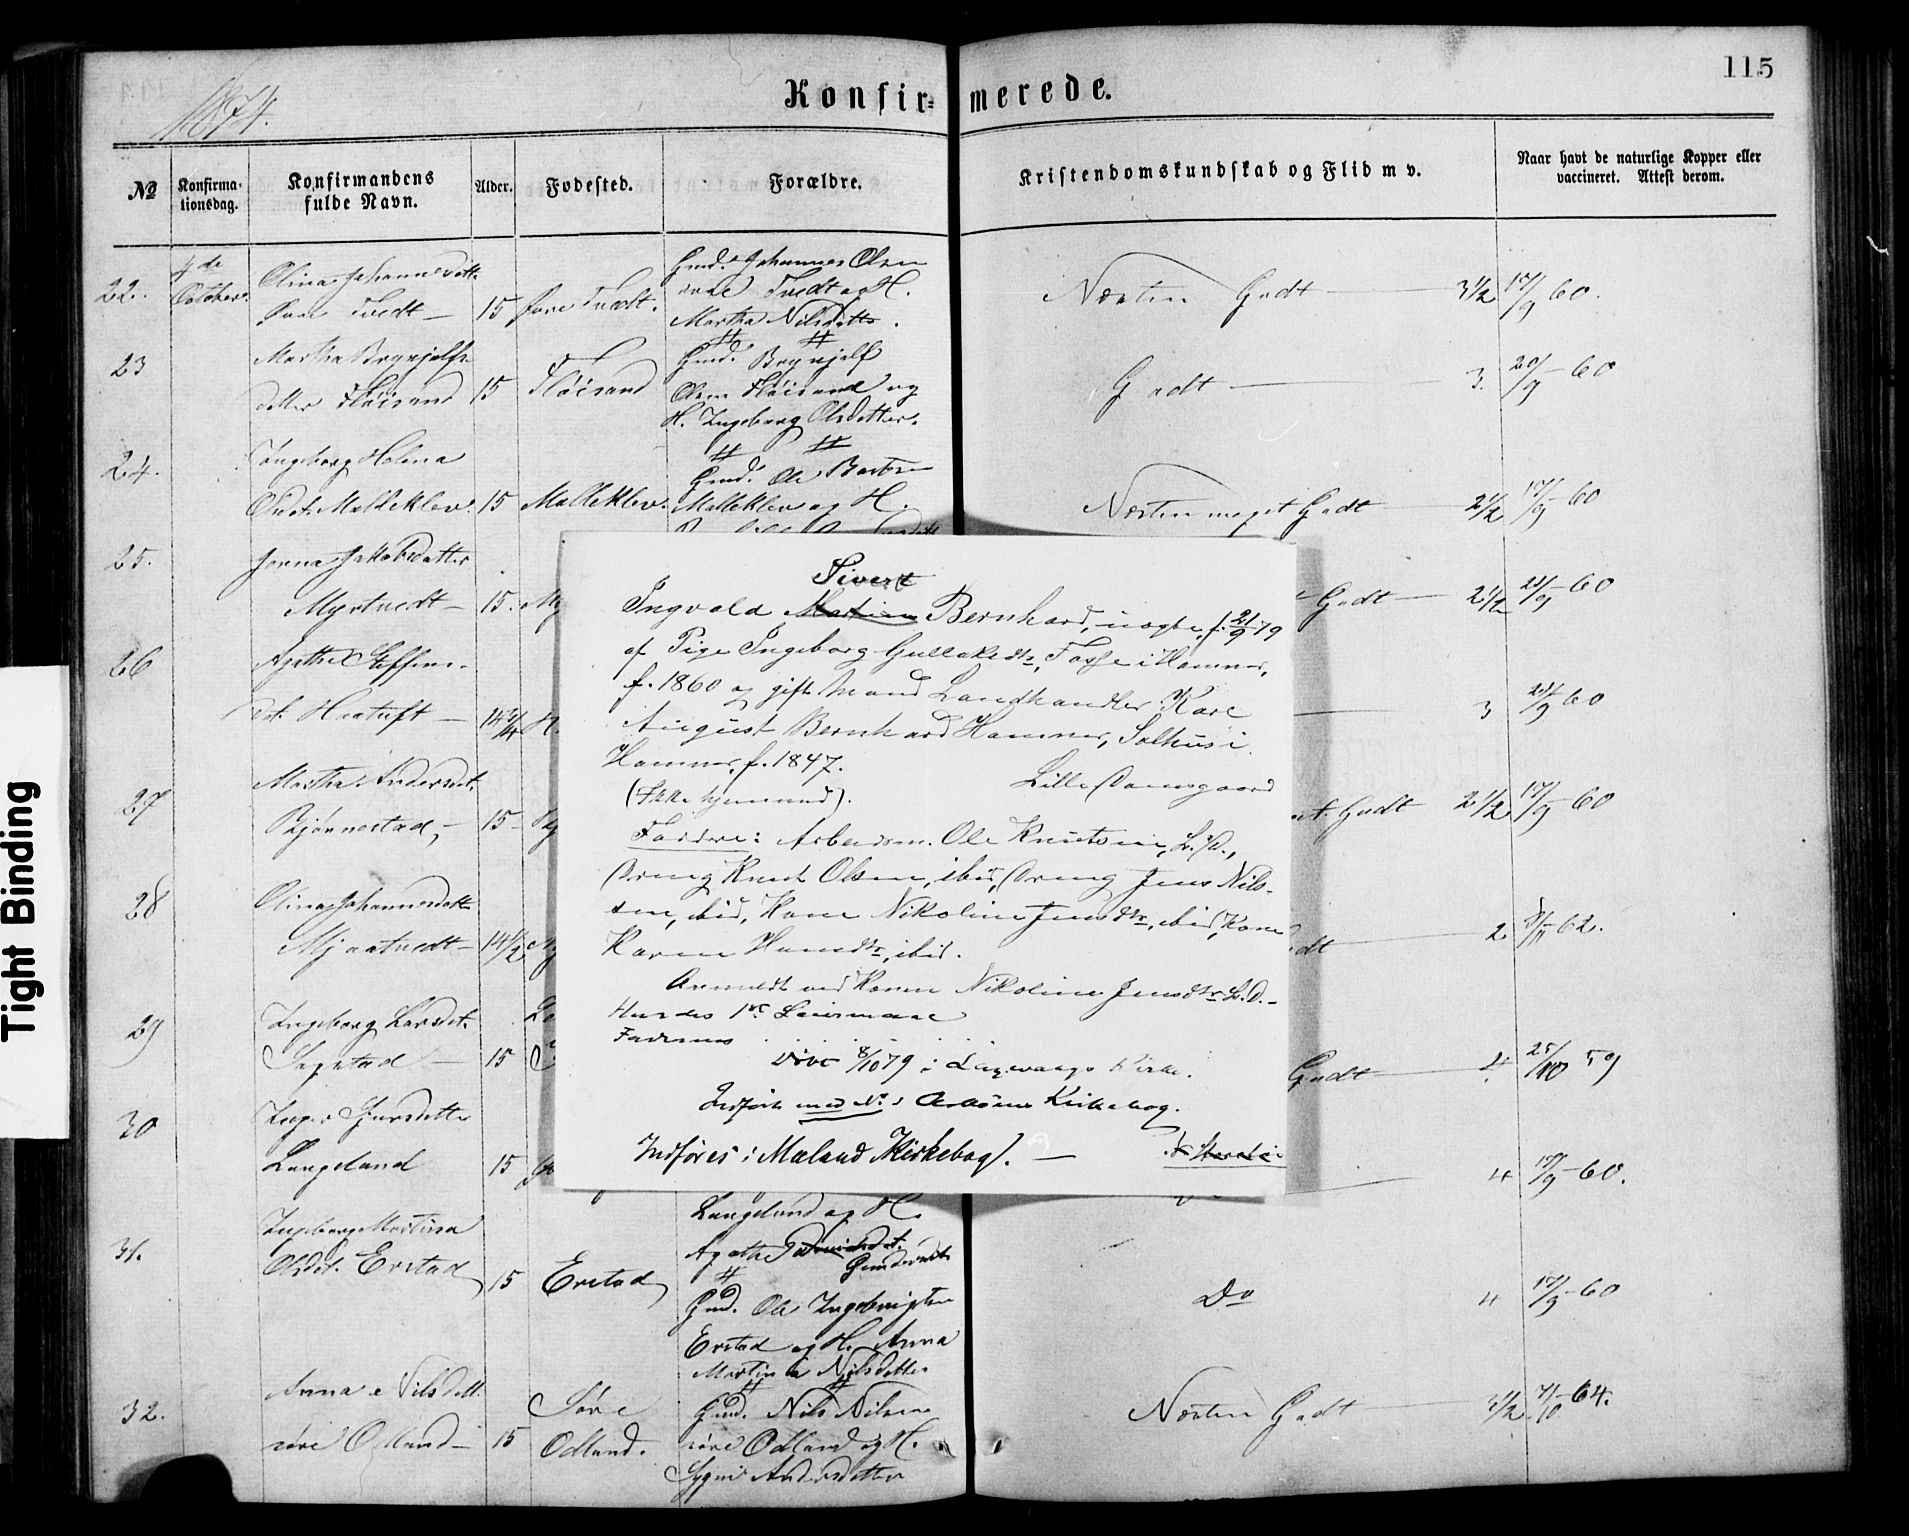 115
1874.
Konfir= merede.
No
Konfirma-
tionsdag.
Konfirmandens
fulde Navn.
Alder.
Fødested.
Forældre.
Kristendomskundskab og Flid m v.
Naar havt de naturlige Kopper eller
vaccineret. Attest derom.
22. 4de October Olina Johannesdatt.
Tvedt 15 Tvedt.
Gmd. Johannes Olsen
Tvedt og H.
Martha Nilsdatter.
Næsten Godt 3 1/2 17/9 60.
23 Martha Brynjulfs
datter Fløisand 15 Fløisand
Gmd. Brynjulf
Olsen Fløisand og
H. Ingeborg Olsdatter.
Godt 3. 20/9 60
24. Ingeborg Helena
Olsdt. Molleklev. 15 Molleklev.
Gmd. Ole
Molleklev og H.
Næsten meget Godt 2 1/2 17/9 60
25. Jakobsdatter
Myrtvedt 15.
Godt 2 1/2 /9 60
26 Agathe Steffens
dt. Haatuft 14 3/4
3 /9 60
27 Martha Andersdt.
Bjørnestad, 15
Godt 2 1/2 17/9 60
28 Olina Johannesdatt
Mjaatvedt 14 1/2
2 /11 62.
29 Ingeborg Larsdt.
Sagstad 15
Godt 4 25/10 59
30
Langeland 15
Langeland og H.
Agathe
4 17/9 60.
31. Ingeborg Martina
Olsdt. Erstad 15 Erstad
Gmd. Ole Ingebrigtsen
Erstad og H. Anna
Martina Nilsdatter
Do 4 17/9 60
32. Anna Nilsdatt.
Odland 15 Søre
Odland.
Gmd. Nils Nilsen
søre Odland og H.
Andersdatter
Næsten Godt 3 1/2 7/10 64.
Sivert
Ingvald Bernhard, uægte, f. 21/9 79
af Pige Ingeborg Gullaksdtr, Fosse i Hammer,
f. 1860 og gift Mand Landhandler Karl
August Bernhard Hammer, Salhus i
Hammer, f. 1847.
(Ikke hjemmed). Lille Damsgaard
Faddere: Arbeidsm. Ole Knutsen, L. D.,
Dreng Knut Olsen, ibid, Dreng Jens Nils-
sen, ibid, Kone Nikoline Jensdtr, ibid, Kone
Karen Hansdtr, ibid.
Anmeldt ved Konen Nikoline Jensdtr L. D.
Hendes 1ste Leiermaal
Faderens . . . . . .
Døbt 8/10 79 i Laxevaags Kirke.
Indført med No 1 Kirkebog.
Indføres i Mæland Kirkebog. —
Tight Binding